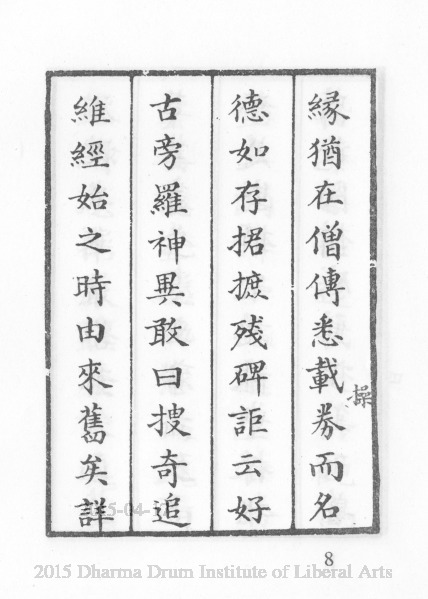 緣猶在僧傳悉載券而名
操
德如存捃摭殘碑詎云好
古旁羅神異敢曰搜奇追
維經始之時由來舊矣詳
8
2015 Dharma Drum Institute of Liberal Arts